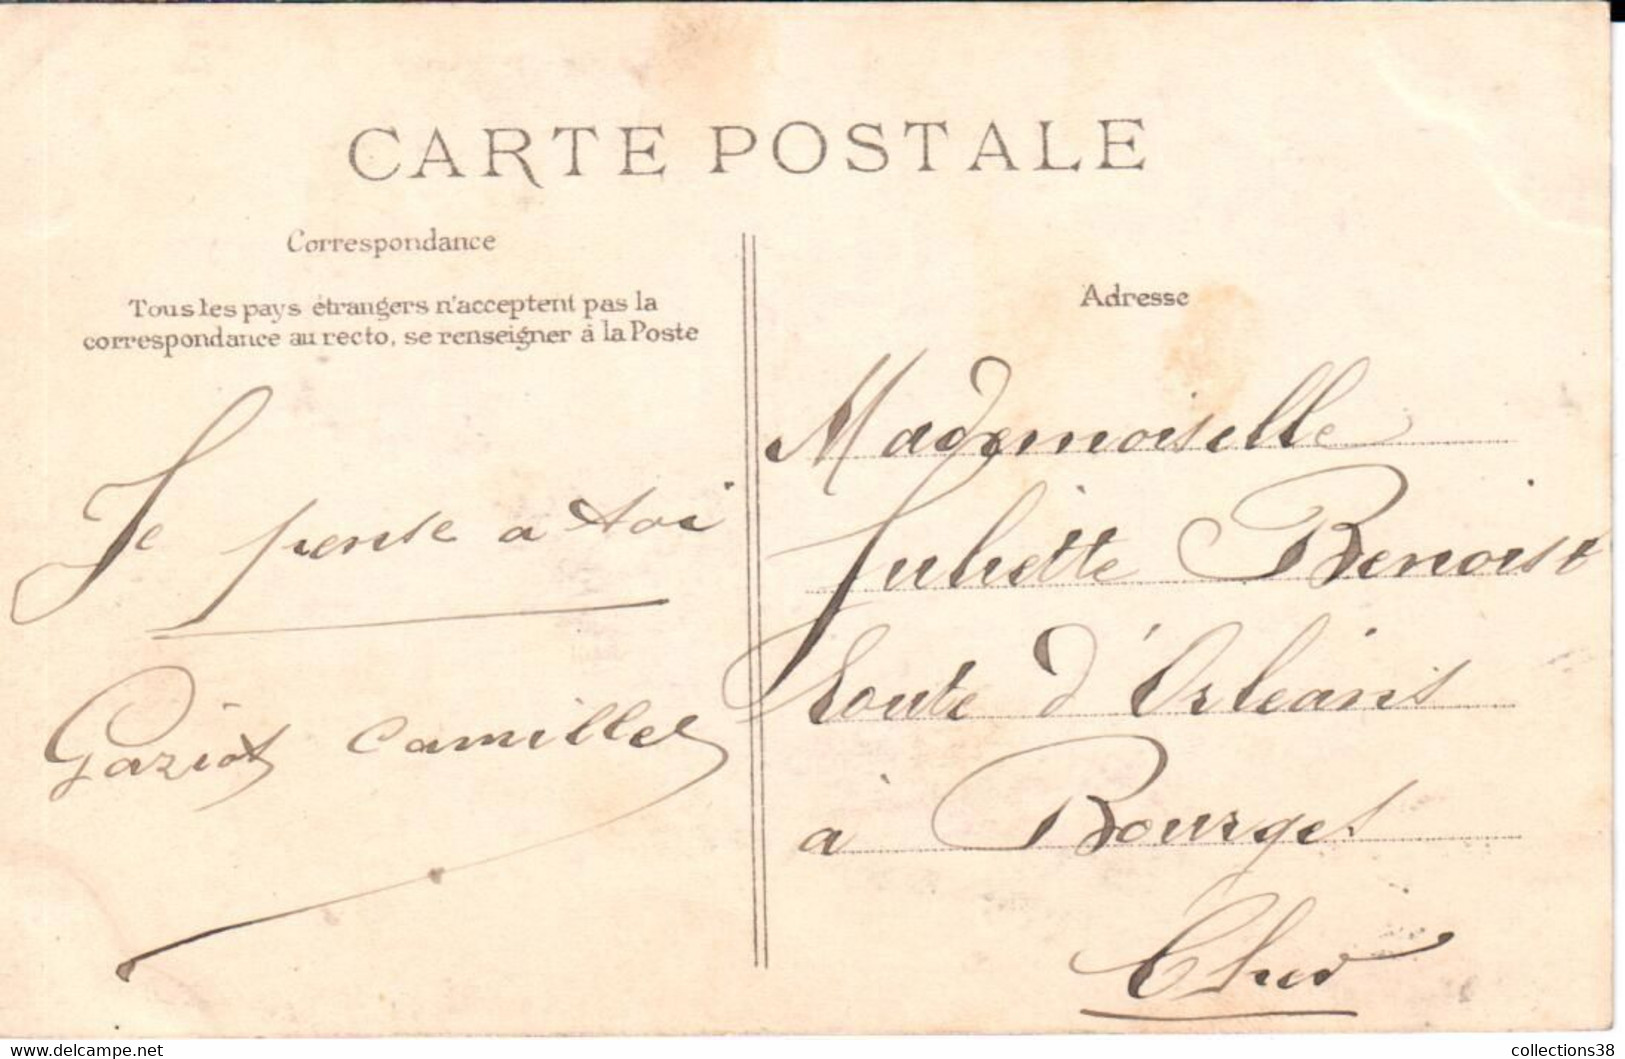 CARTE POSTALE
Correspondance
Tous les pays étrangers n'acceptent pas la
correspondance au recto, se renseigner à la Poste
Je pense a toi
Gaziot Camille
Adresse
Mademoiselle
Juliette Benoist
Route d'Orléans
à Bourges
Cher
www.delcampe.net
collections38